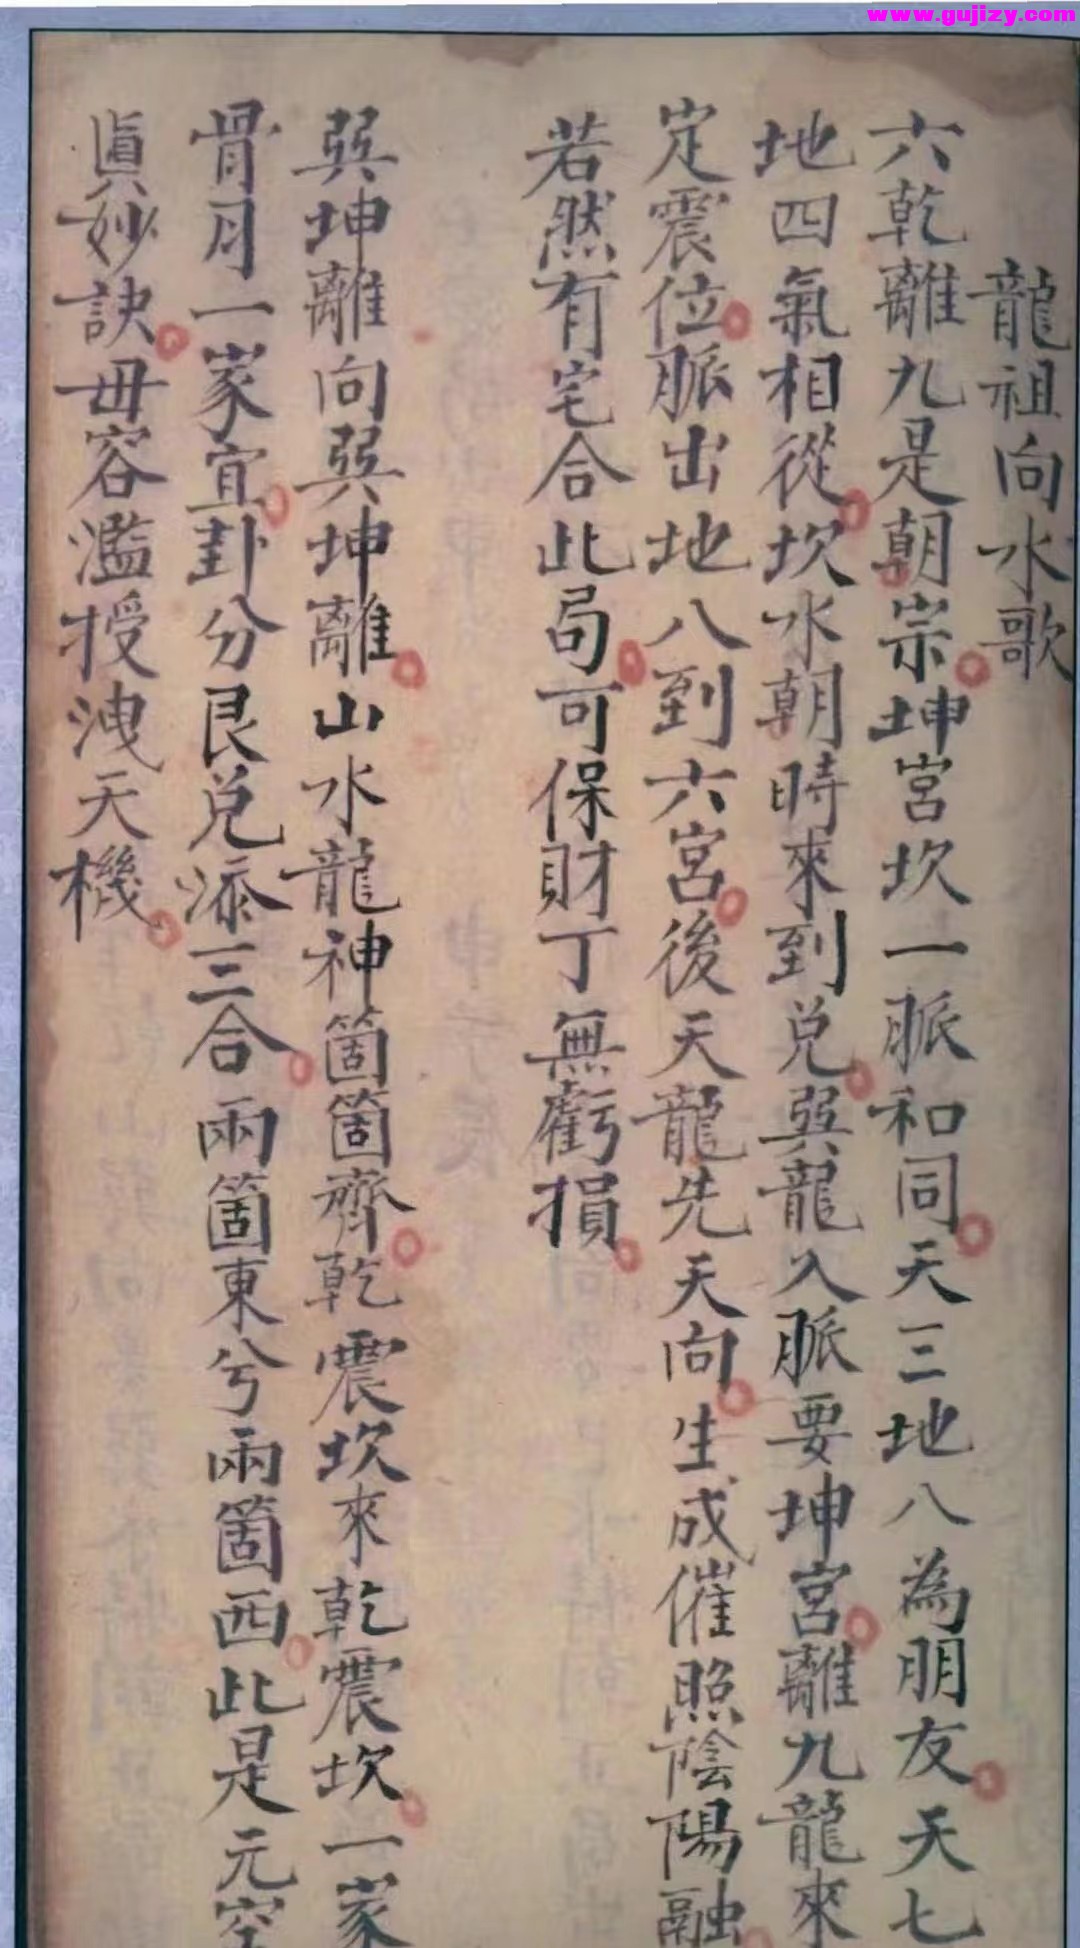 www.gujizy.com
龍祖向水歌
六乾離九是朝宗坤宮坎一脈和同天三地八為朋友天七
地四氣相從坎水朝時來到兌巽龍入脈要坤宮離九龍來
定震位脈出地八到六宮後天龍先天向生成催照陰陽融
若然有宅合此局可保財丁無虧損
巽坤離向巽坤離山水龍神箇箇齊乾震坎來乾震坎一家
骨月一家宜卦分艮兌添三合兩箇東兮兩箇西此是元空
眞妙訣毋容濫授洩天機